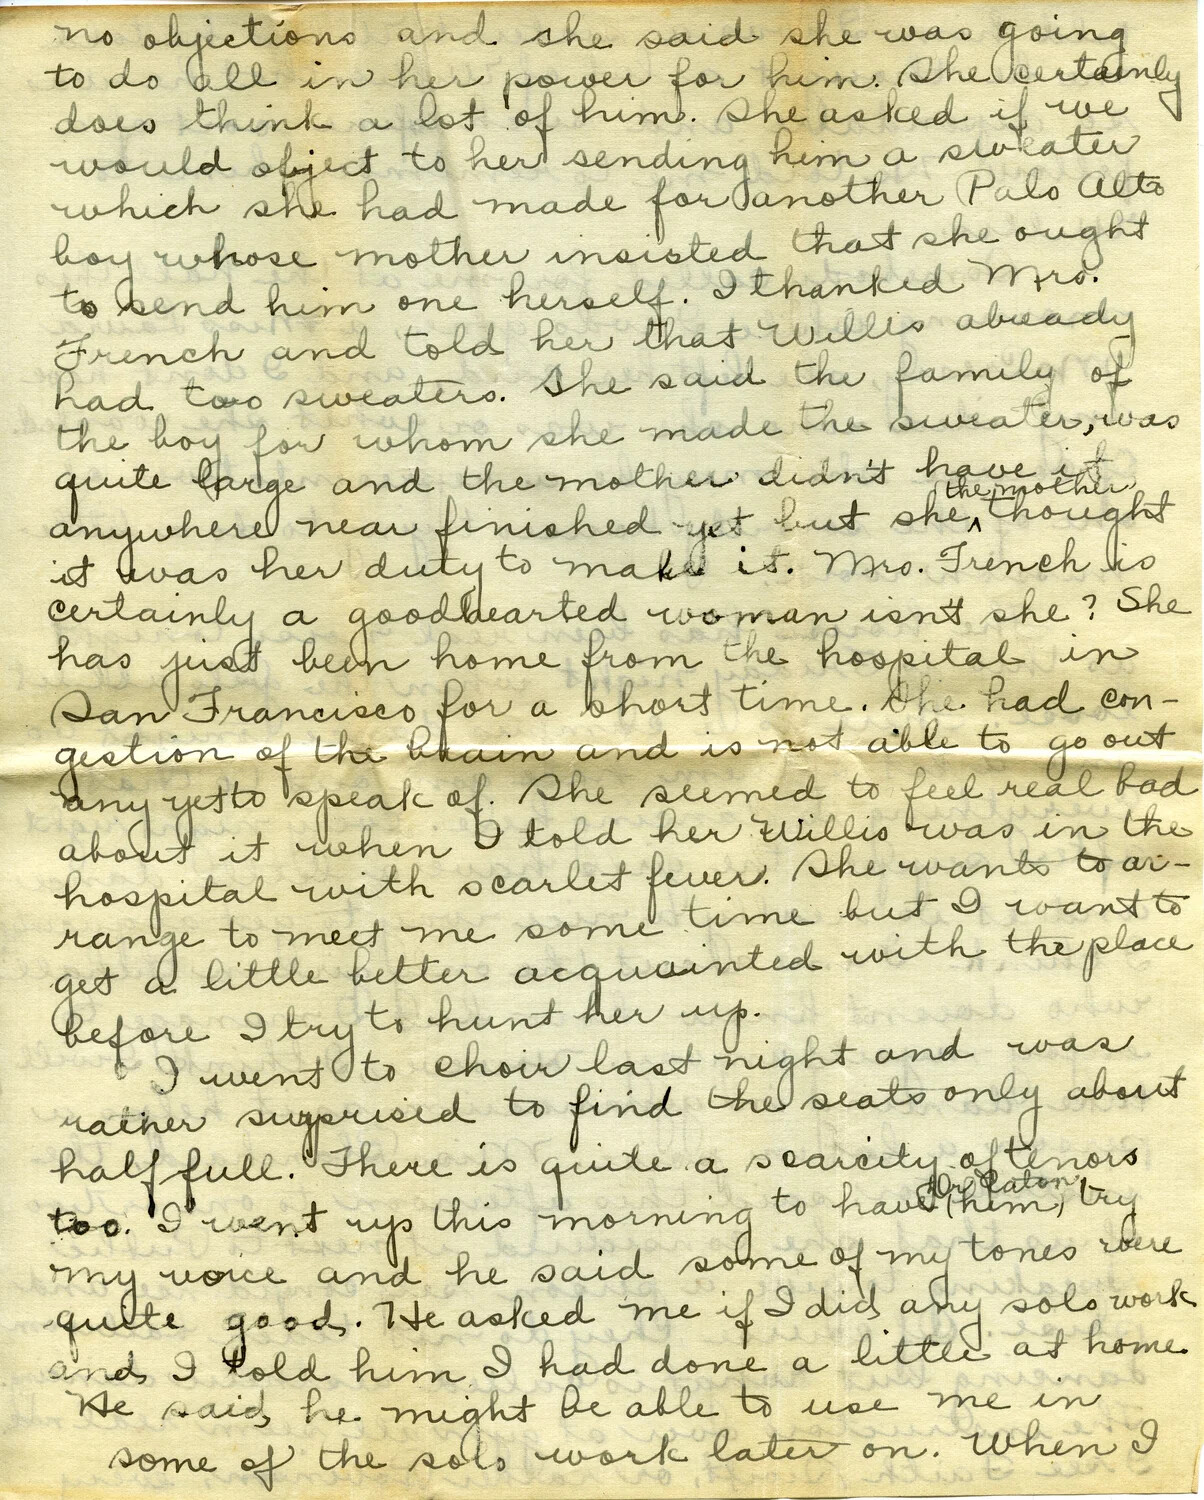 no objections and she said she was going
to do all in her power for him. She certainly
does think a lot of him. She asked if we
would object to her sending him a sweater
which she had made for another Palo Alto
boy whose mother insisted that she ought
to send him one herself. I thanked Mrs.
French and told her that Willis already
had two sweaters. She said the family of
the boy for whom she made the sweater, was
quite large and the mother didn't have it
anywhere near finished yet but she ^ the mother thought
it was her duty to make it. Mrs. French is
certainly a goodhearted woman isn't she? She
has just been home from the hospital in
San Francisco for a short time. She had con-
gestion of the brain and is not able to go out
any yet to speak of. She seemed to feel real bad
about it when I told her Willis was in the
hospital with scarlet fever. She wants to ar-
range to meet me some time but I want to
get a little better acquainted with the place
before I try to hunt her up.
I went to choir last night and was
rather surprised to find the seats only about
half full. There is quite a scarcity of tenors
too. I went up this morning to have (him) Mr. Eaton try
my voice and he said some of my tones were
quite good. He asked me if I did any solo work
and I told him I had done a little at home.
He said he might be able to use me in
some of the solo work later on. When I